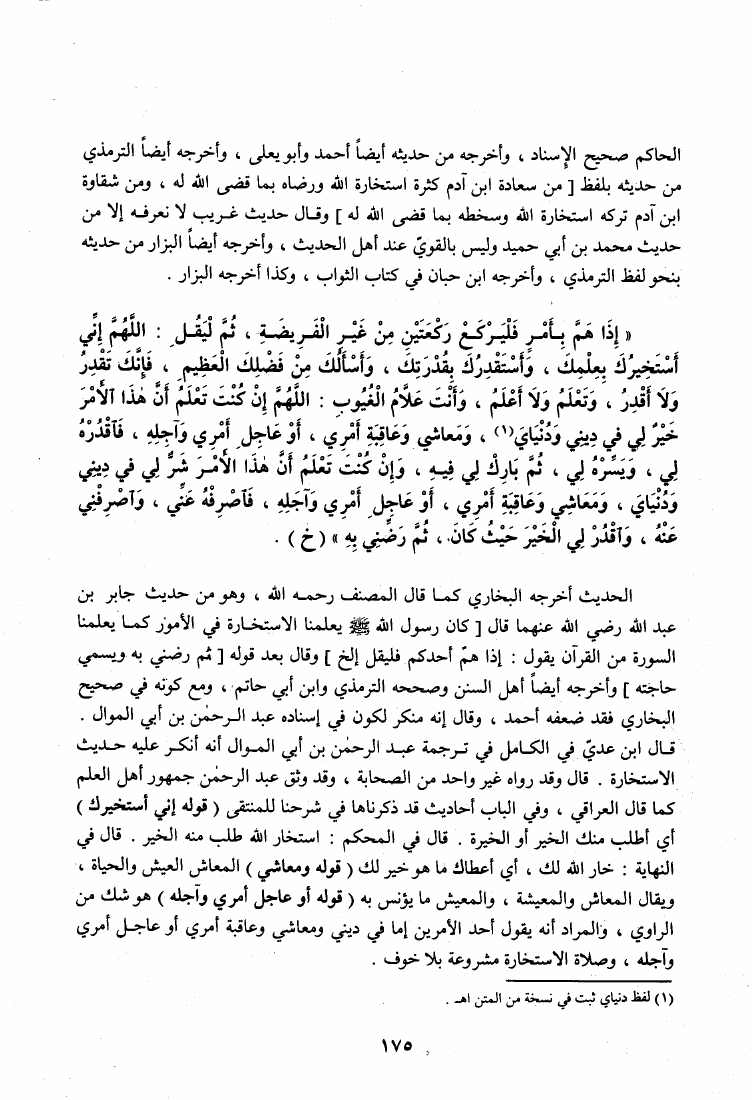 الحاكم صحيح الإسناد ، وأخرجه من حديثه أيضاً أحمد وأبو يعلى ، وأخرجه أيضاً الترمذي
من حديثه بلفظ [ من سعادة ابن آدم كثرة استخارة الله ورضاه بما قضى الله له ، ومن شقاوة
ابن آدم تركه استخارة الله وسخطه بما قضى الله له ] وقال حديث غريب لا نعرفه إلا من
حديث محمد بن أبي حميد وليس بالقويّ عند أهل الحديث ، وأخرجه أيضاً البزار من حديثه
بنحو لفظ الترمذي ، وأخرجه ابن حبان في كتاب الثواب ، وكذا أخرجه البزار .
« إِذَا هَمَّ بِأَمْرٍ فَلْيَرْكَعْ رَكْعَتَيْنِ مِنْ غَيْرِ الْفَرِيضَةِ ، ثُمَّ لْيَقُلِ : اللَّهُمَّ إِنِّي
أَسْتَخِيرُكَ بِعِلْمِكَ ، وَأَسْتَقْدِرُكَ بِقُدْرَتِكَ ، وَأَسْأَلُكَ مِنْ فَضْلِكَ الْعَظِيمِ ، فَإِنَّكَ تَقْدِرُ
وَلَا أَقْدِرُ ، وَتَعْلَمُ وَلَا أَعْلَمُ ، وَأَنْتَ عَلَّامُ الْغُيُوبِ : اللَّهُمَّ إِنْ كُنْتَ تَعْلَمُ أَنَّ هٰذَا الْأَمْرَ
خَيْرٌ لِي فِي دِينِي وَدُنْيَايَ(١) ، وَمَعَاشِي وَعَاقِبَةِ أَمْرِي ، أَوْ عَاجِلِ أَمْرِي وَآجِلِهِ ، فَآقْدُرْهُ
لِي ، وَيَسِّرْهُ لِي ، ثُمَّ بَارِكْ لِي فِيهِ ، وَإِنْ كُنْتَ تَعْلَمُ أَنَّ هٰذَا الْأَمْرَ شَرٌّ لِي فِي دِينِي
وَدُنْيَايَ ، وَمَعَاشِي وَعَاقِبَةِ أَمْرِي ، أَوْ عَاجِلِ أَمْرِي وَآجِلِهِ ، فَآصْرِفْهُ عَنِّي ، وَآصْرِفْنِي
عَنْهُ ، وَآقْدُرْ لِي الْخَيْرَ حَيْثُ كَانَ ، ثُمَّ رَضِّنِي بِهِ » ( خ ) .
الحديث أخرجه البخاري كما قال المصنف رحمه الله ، وهو من حديث جابر بن
عبد الله رضي الله عنهما قال [ كان رسول الله ﷺ يعلمنا الاستخارة في الأمور كما يعلمنا
السورة من القرآن يقول : إذا همّ أحدكم فليقل إلخ ] وقال بعد قوله [ ثم رضني به ويسمي
حاجته ] وأخرجه أيضاً أهل السنن وصححه الترمذي وابن أبي حاتم ، ومع كونه في صحيح
البخاري فقد ضعفه أحمد ، وقال إنه منكر لكون في إسناده عبد الرحمٰن بن أبي الموال .
قال ابن عديّ في الكامل في ترجمة عبد الرحمٰن بن أبي الموال أنه أنكر عليه حديث
الاستخارة . قال وقد رواه غير واحد من الصحابة ، وقد وثق عبد الرحمٰن جمهور أهل العلم
كما قال العراقي ، وفي الباب أحاديث قد ذكرناها في شرحنا للمنتقى ( قوله إني أستخيرك )
أي أطلب منك الخير أو الخيرة . قال في المحكم : استخار الله طلب منه الخير . قال في
النهاية : خار الله لك ، أي أعطاك ما هو خير لك ( قوله ومعاشي ) المعاش العيش والحياة ،
ويقال المعاش والمعيشة ، والمعيش ما يؤنس به ( قوله أو عاجل أمري وآجله ) هو شك من
الراوي ، والمراد أنه يقول أحد الأمرين إما في ديني ومعاشي وعاقبة أمري أو عاجل أمري
وآجله ، وصلاة الاستخارة مشروعة بلا خوف .
(١) لفظ دنياي ثبت في نسخة من المتن اهـ .
١٧٥